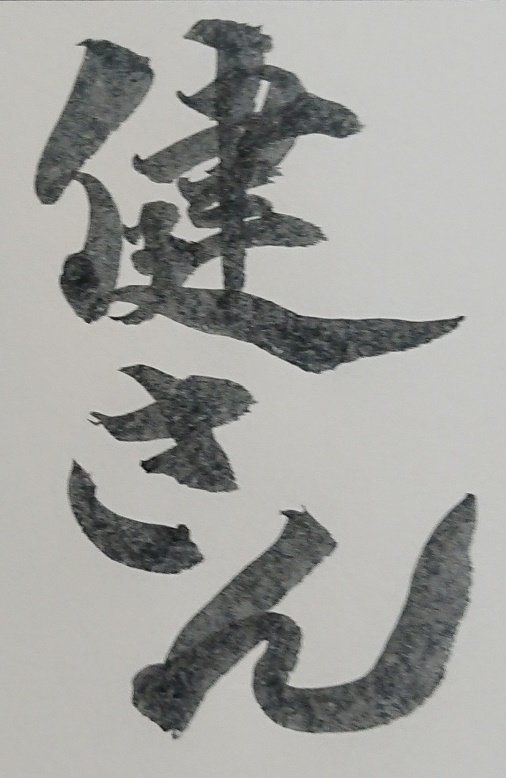 健さん